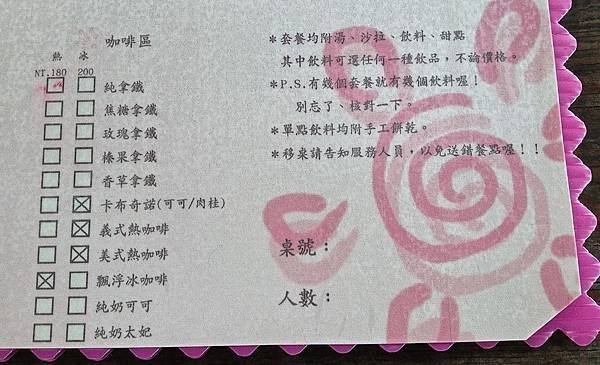 咖啡區
熱 冰
NT.180 200
純拿鐵
焦糖拿鐵
玫瑰拿鐵
榛果拿鐵
香草拿鐵
卡布奇諾(可可/肉桂)
義式熱咖啡
美式熱咖啡
飄浮冰咖啡
純奶可可
純奶太妃
*套餐均附湯、沙拉、飲料、甜點
其中飲料可選任何一種飲品,不論價格。
*P.S.有幾個套餐就有幾個飲料喔!
別忘了、核對一下。
*單點飲料均附手工餅乾。
*移桌請告知服務人員,以免送錯餐點喔!!
桌號:
人數: